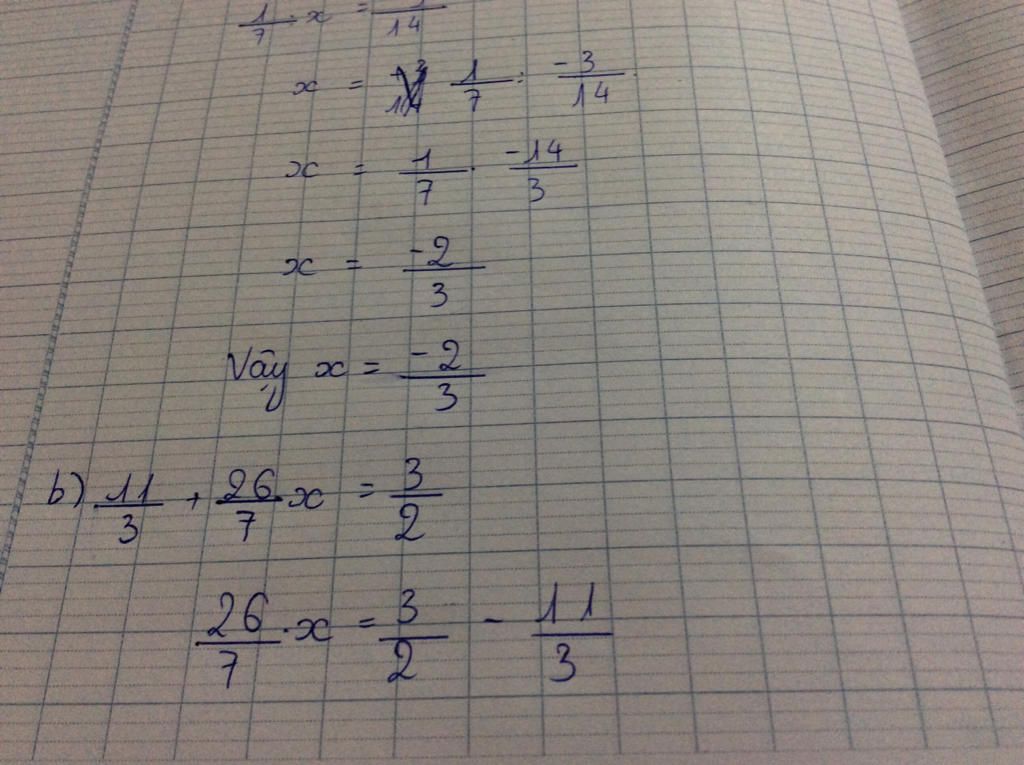 1/7 : x = /14
x = 1/7 : -3/14
x = 1/7 . -14/3
x = -2/3
Vậy x = -2/3
b) 11/3 + 26/7 x = 3/2
26/7 . x = 3/2 - 11/3